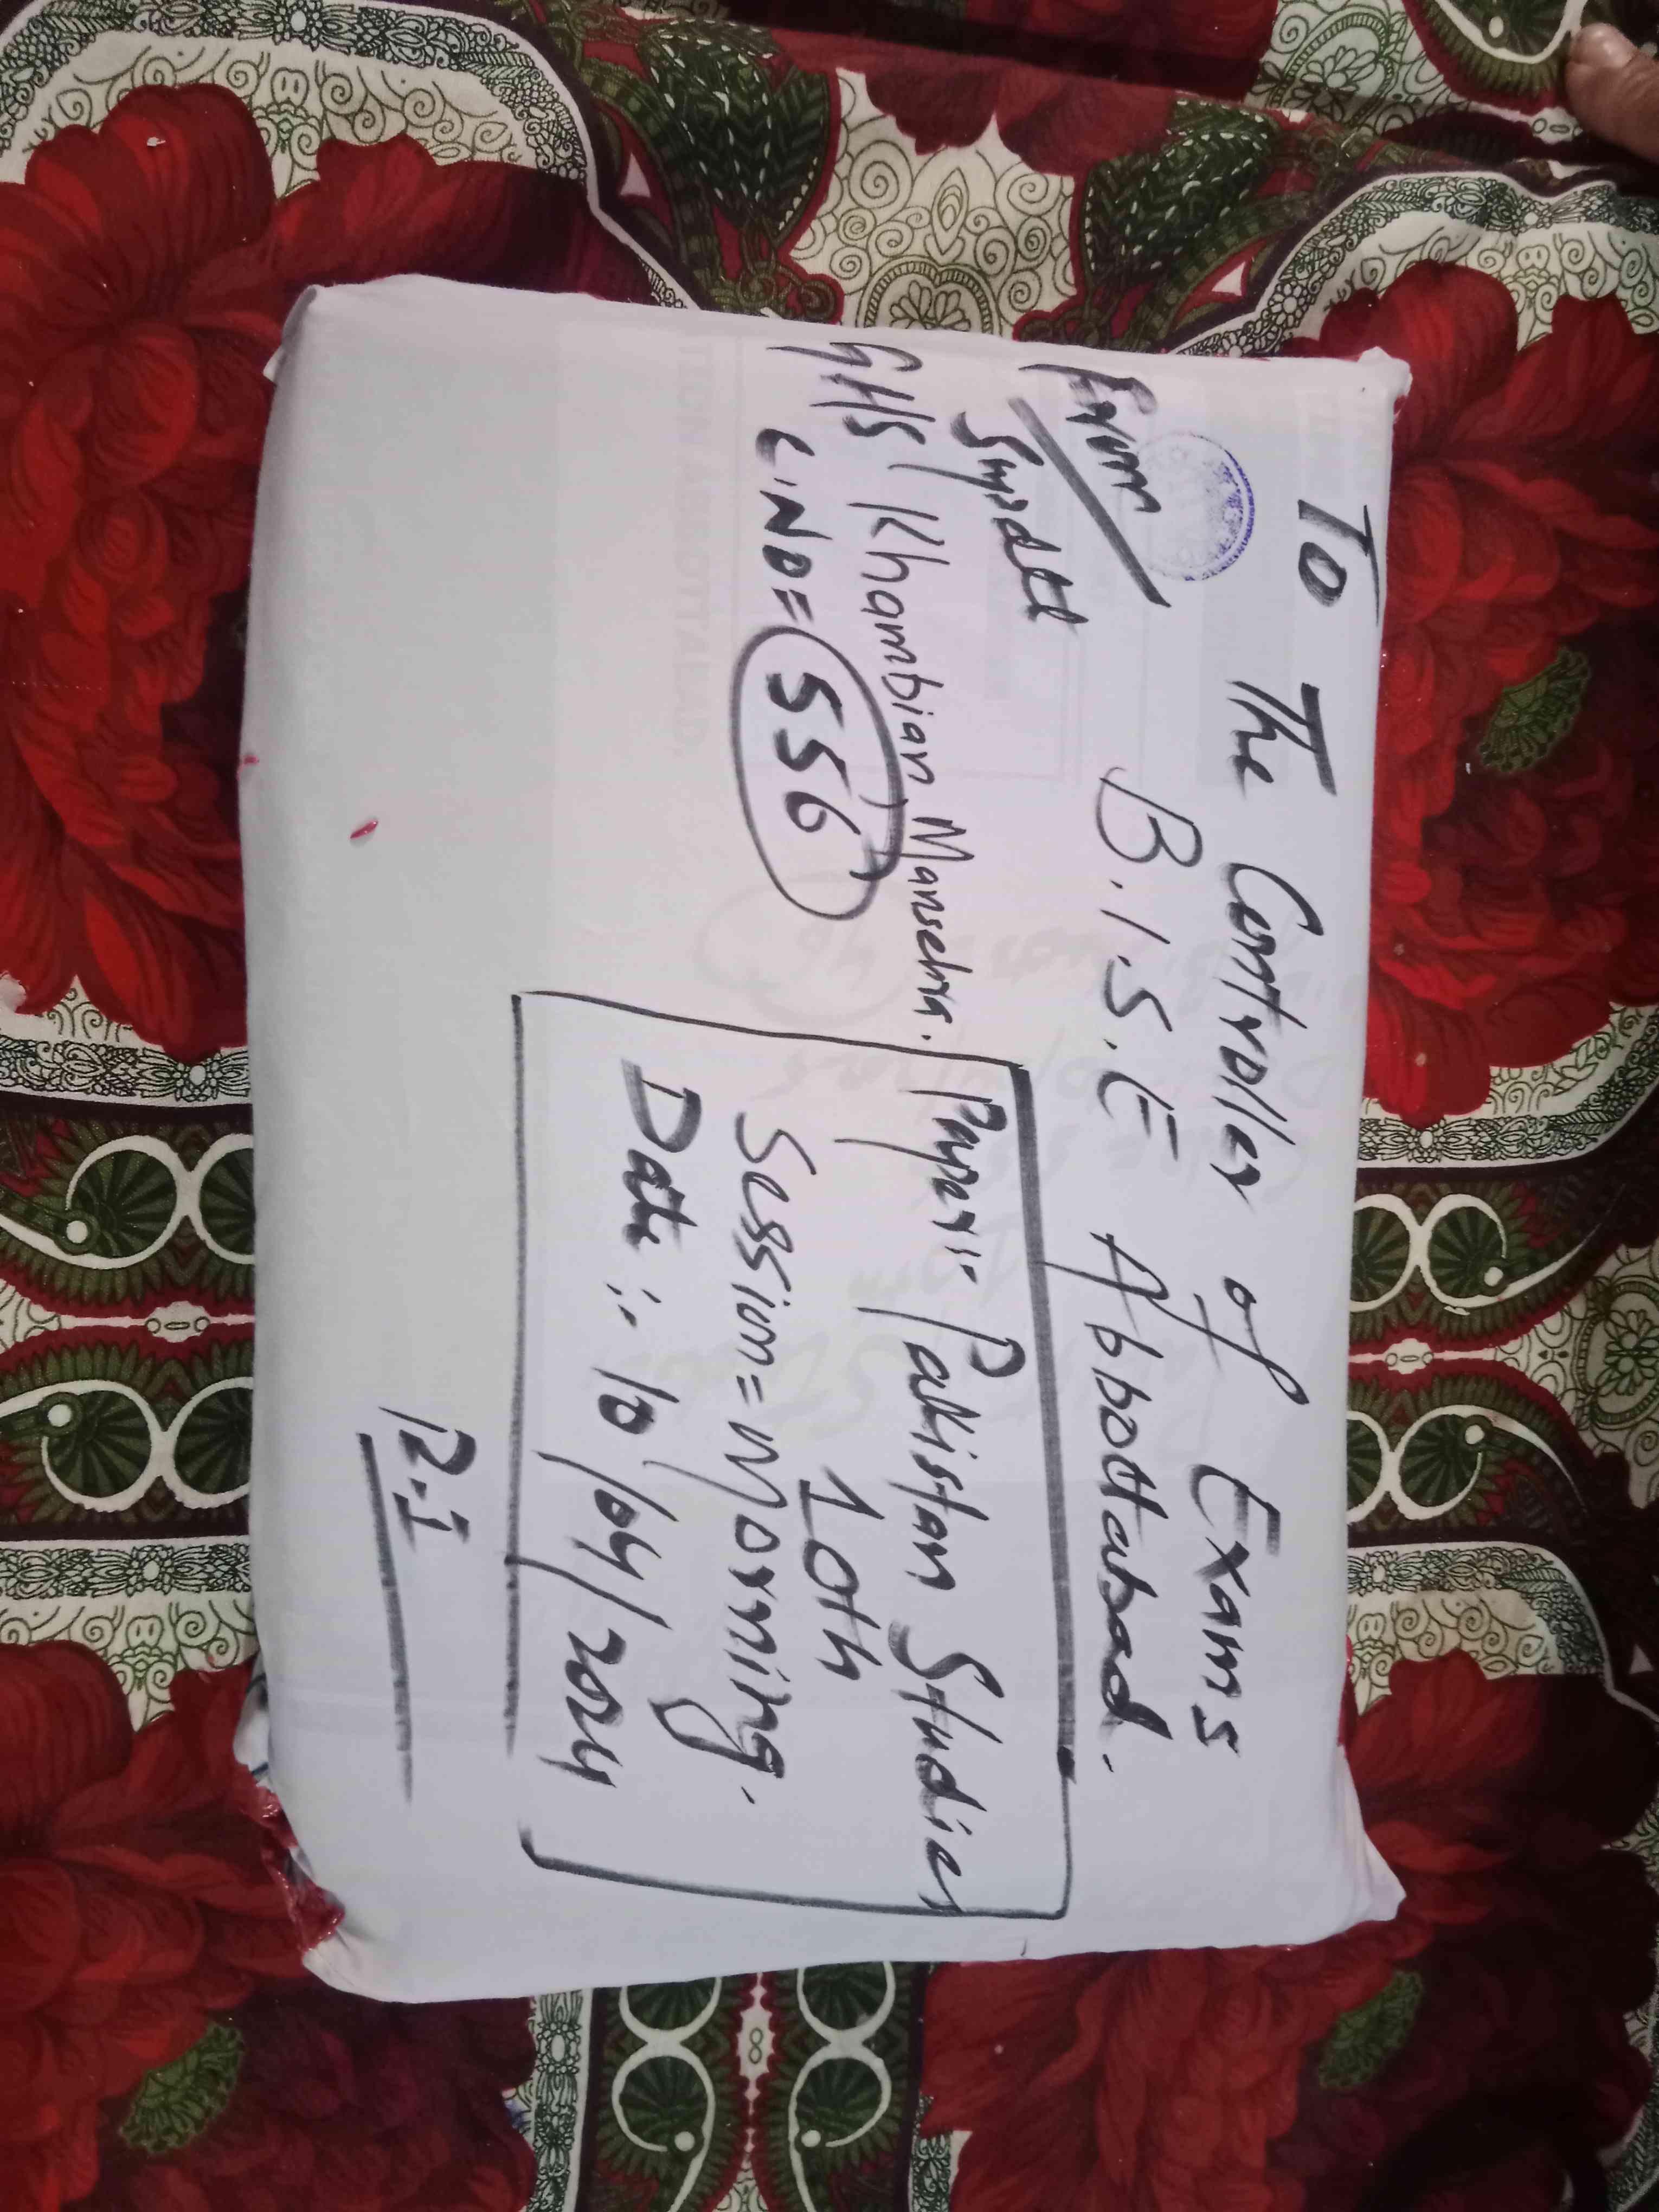 To The Controller of Exams
B.I.S.E Abbottabad.
From
Supdtt
GHS Khambian Mansehra.
C.NO= 556
Paper:- Pakistan Studies
10th
Session= Morning.
Date :- 10/04/2024
P-I